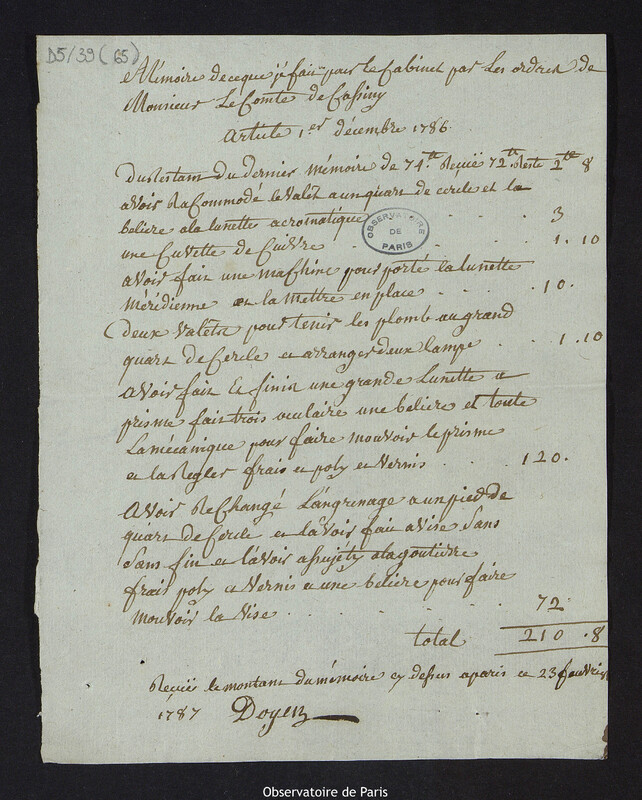 D5/39 (65)
Mémoire de ce que j'é fait pour le Cabinet par les ordres de
Monsieur Le Comte de Cassiny
Article 1er décembre 1786
Du Restant du dernier mémoire de 74tt Reçüe 72tt Reste 2tt 8
avoir Racommodé le valet a un quart de cercle et la
beliere a la lunette acromatique . . . . 3
OBSERVATOIRE DE PARIS
une Cuvette de Cuivre . . . . 1 . 10
avoir fait une machine pour porté la lunette
Méridienne et la mettre en place . . . . 10 .
Deux valets pour tenir les plomb au grand
quart de Cercle et arranger deux lampe . . 1 . 10
avoir fait et finir une grande Lunette a
prisme fait trois oculaire une beliere et toute
La mécanique pour faire mouvoir le prisme
et la Regler frais et poly et vernis . . . 120 .
Avoir ReChangé L'angrinage a un pied de
quart de Cercle et l'avoir fait a vise Sans
Sans fin et l'avoir assujéty a la goutierre
frais poly et Vernis et une beliere pour faire
mouvoir la Vise . . . . . 72
total 210 . 8
Reçüe le montant du mémoire cy dessus a paris ce 23 fevrier
1787 Doyen
Observatoire de Paris